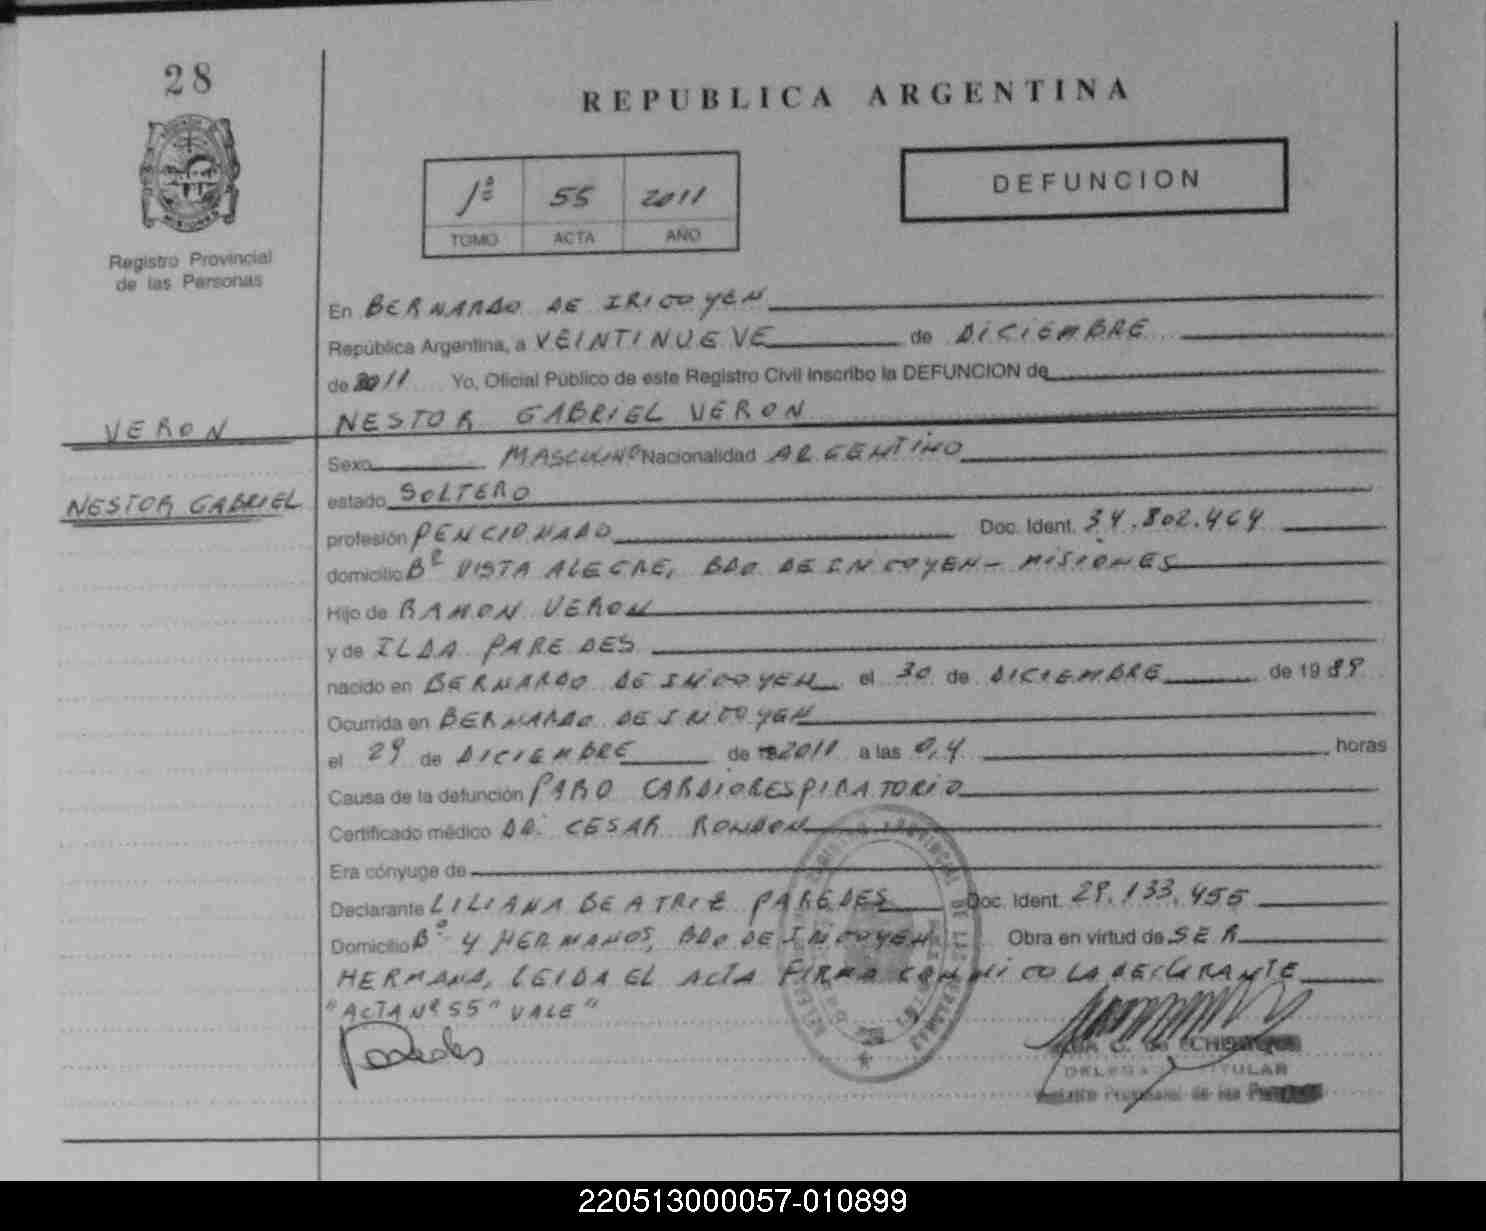 28
REPUBLICA ARGENTINA
1ª 55 2011
TOMO ACTA AÑO
DEFUNCION
Registro Provincial
de las Personas
En BERNARDO DE IRIGOYEN
República Argentina, a VEINTINUEVE de DICIEMBRE
de 2011 Yo, Oficial Público de este Registro Civil inscribo la DEFUNCION de
VERON NESTOR GABRIEL VERON
Sexo MASCULINO Nacionalidad ARGENTINO
NESTOR GABRIEL estado SOLTERO
profesión PENCIONADO Doc. Ident. 34.802.464
domicilio Bº VISTA ALEGRE, BDO. DE IRIGOYEN - MISIONES
Hijo de RAMON VERON
y de ILDA PAREDES
nacido en BERNARDO DE IRIGOYEN el 30 de DICIEMBRE de 1989
Ocurrida en BERNARDO DE IRIGOYEN
el 29 de DICIEMBRE de 2011 a las 0,4 horas
Causa de la defunción PARO CARDIORESPIRATORIO
Certificado médico DR. CESAR RONDON
Era cónyuge de
Declarante LILIANA BEATRIZ PAREDES Doc. Ident. 29.133.455
Domicilio Bº 4 HERMANOS, BDO DE IRIGOYEN Obra en virtud de SER
HERMANA, LEIDA EL ACTA FIRMA CONMIGO LA DECLARANTE
"ACTA Nº 55" VALE"
Paredes
DELEGA TITULAR
Registro Provincial de las
220513000057-010899